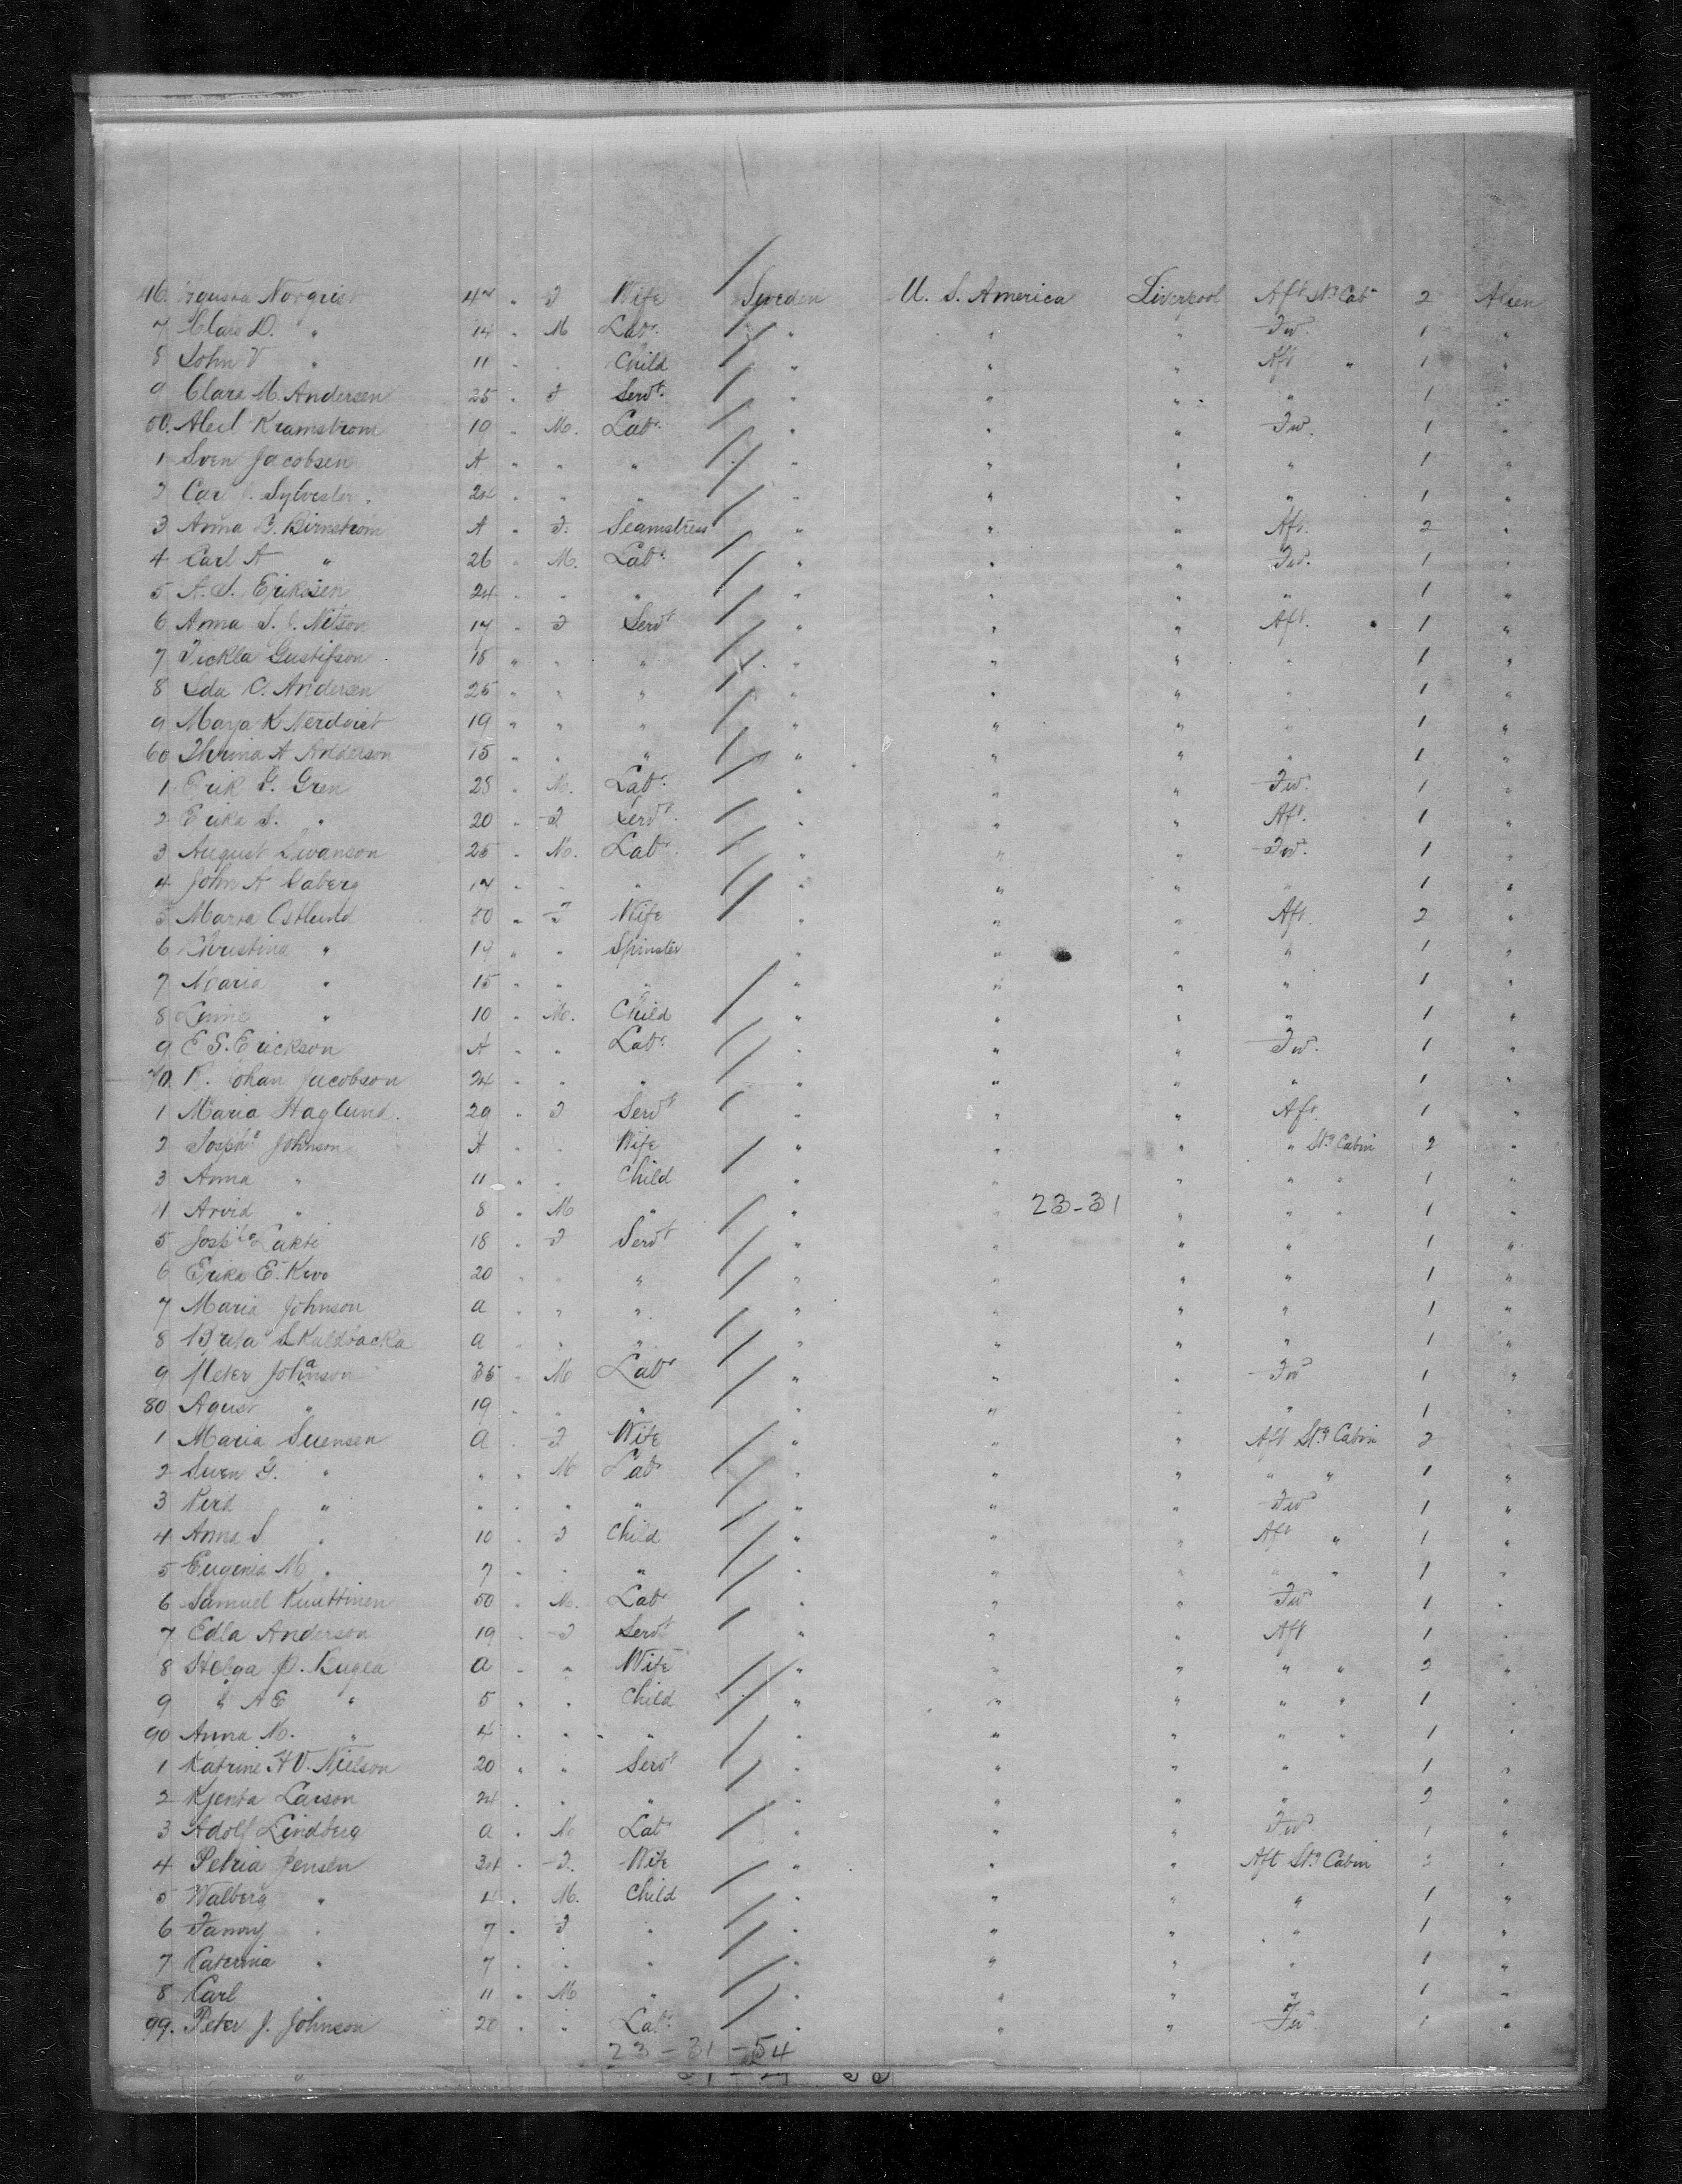 46. Agusta Norquist 47 " F Wife Sweden U. S. America Liverpool Aft Stg Cab 2 Alien
7 Clais D. " 14 " M Labr. " " " Fw. 1 "
8 John V " 11 " " Child " " " Aft " 1 "
9 Clara M. Andersen 25 " F Servt. " " " " 1 "
50. Abel Kramstrom 10 " M. Labr. " " " Fw. 1 "
1 Sven Jacobsen A " " " " " " " 1 "
2 Carl J. Sylvester 24 " " " " " " " 1 "
3 Anna B. Birnstrom A " F. Seamstress " " " Aft. 2 "
4 Carl A " 26 " M. Labr. " " " Fw. 1 "
5 A. S. Erikssen 24 " " " " " " " 1 "
6 Anna S. J. Nilson 17 " F Servt " " " Aft. 1 "
7 Tickla Gustifson 18 " " " " " " " 1 "
8 Ida C. Andersen 25 " " " " " " " 1 "
9 Marja K Nerdvist 19 " " " " " " " 1 "
60 Thrina A Anderson 15 " " " " " " " 1 "
1 Erik G. Gren 25 " M. Labr. " " " Fw. 1 "
2 Erika S. " 20 " F Servt. " " " Aft. 1 "
3 August Swanson 25 " M. Labr " " " Fw. 1 "
4 John A Saberg 17 " " " " " " " 1 "
5 Marta Ostlund 50 " F Wife " " " Aft. 2 "
6 Christina " 19 " " Spinster " " " " 1 "
7 Maria " 15 " " " " " " " 1 "
8 Linne " 10 " M. Child " " " " 1 "
9 E S. Erickson A " " Labr. " " " Fw. 1 "
70. K. Johan Jacobson 24 " " " " " " " 1 "
1 Maria Haglund 29 " F Servt " " " Aft. 1 "
2 Josepha Johnson A " " Wife " " " " Stg Cabin 2 "
3 Anna " 11 " " Child " " " " " 1 "
4 Arvid " 8 " M " " " 23-31 " " " 1 "
5 Josepha Lakti 18 " F Servt " " " " 1 "
6 Erika E. Kivo 20 " " " " " " " 1 "
7 Maria Johnson a " " " " " " " 1 "
8 Brita S Kuldbacka a " " " " " " " 1 "
9 Peter Johanson 35 " M Labr " " " Fw 1 "
80 Agust " 19 " " " " " " " 1 "
1 Maria Suensen a " F Wife " " " Aft Stg Cabin 2 "
2 Suen G. " " " M Labr " " " " " 1 "
3 Perd " " " " " " " " Fw 1 "
4 Anna S " 10 " F Child " " " Aft " 1 "
5 Eugenia M " 7 " " " " " " " " 1 "
6 Samuel Kuuttinen 50 " M. Labr " " " Fw 1 "
7 Edla Anderson 19 " F Servt " " " Aft 1 "
8 Helga P. Kugla a " " Wife " " " " " 2 "
9 " A E " 5 " " Child " " " " " 1 "
90 Anna M. " 4 " " " " " " " " 1 "
1 Katrine H V. Nielson 20 " " Servt " " " " 1 "
2 Kjersta Larson 24 " " " " " " " 2 "
3 Adolf Lindberg a " M Labr " " " Fw 1 "
4 Petria Jensen 34 " F. Wife " " " Aft Stg Cabin 3 "
5 Walberg " 4 " M. Child " " " " 1 "
6 Fanny " 7 " F " " " " " 1 "
7 Katerina " 7 " " " " " " " 1 "
8 Karl " 11 " M " " " " " 1 "
99. Peter J. Johnson 20 " " Labr. " " " Fw 1 "
23-31-54